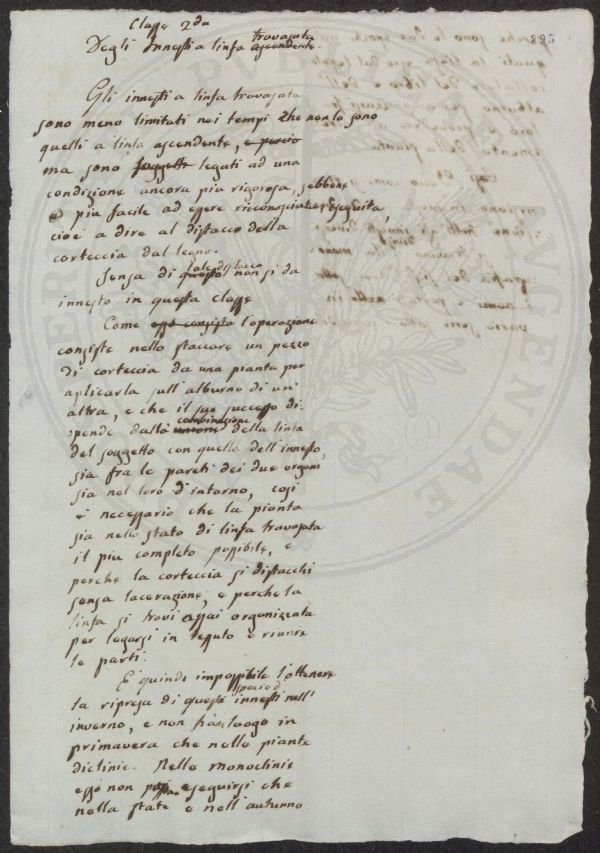 Classe 2da
Degli Innesti a linfa ascendente travasata
895
Gli innesti a linfa travasata
sono meno limitati nei tempi che non lo sono
quelli a linfa ascendente, e perciò
ma sono soggetti legati ad una
condizione ancora più rigorosa, sebbene
più facile ad essere riconosciuta, eseguita,
cioè a dire al distacco della
corteccia dal legno.
Senza di questo tale distaco non si da
innesto in questa classe
Come esso consista l'operazione
consiste nello staccare un pezzo
di corteccia da una pianta per
aplicarla sull'alburno di un'
altra, e che il suo successo di-
pende dalla unione combinazione della linfa
del soggetto con quella dell'innesto,
sia fra le pareti dei due organi
sia nel loro d'intorno, così
è necessario che la pianta
sia nello stato di linfa travasata
il più completo possibile, e
perche la corteccia si distacchi
senza lacerazione, e perche la
linfa si trovi assai organizzata
per legarsi in tessuto e riunire
le parti.
È quindi impossibile l'ottenere
la ripresa di questi innesti nell'
inverno, e non luogo in
primavera che nelle piante
diclinie. Nelle monoclinie
esso non eseguirsi che
nella state e nell'autunno